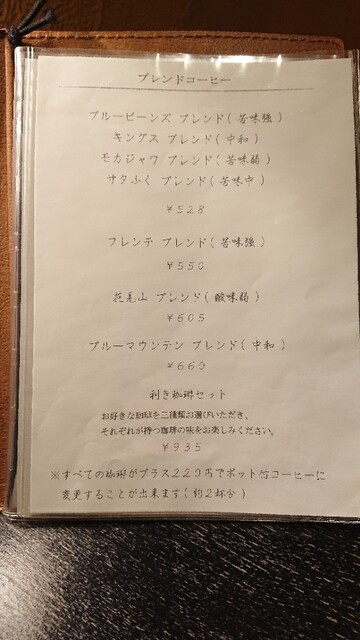 ブレンドコーヒー
ブルービーンズ ブレンド(苦味強)
キングス ブレンド(中和)
モカジャワ ブレンド(苦味弱)
サタふく ブレンド(苦味中)
¥528
フレンチ ブレンド(苦味強)
¥550
花毛山 ブレンド(酸味弱)
¥605
ブルーマウンテン ブレンド(中和)
¥660
利き珈琲セット
お好きな珈琲を三種類お選びいただき、
それぞれが持つ珈琲の味をお楽しみください。
¥935
※すべての珈琲がプラス220円でポット竹コーヒーに
変更することが出来ます(約2杯分)